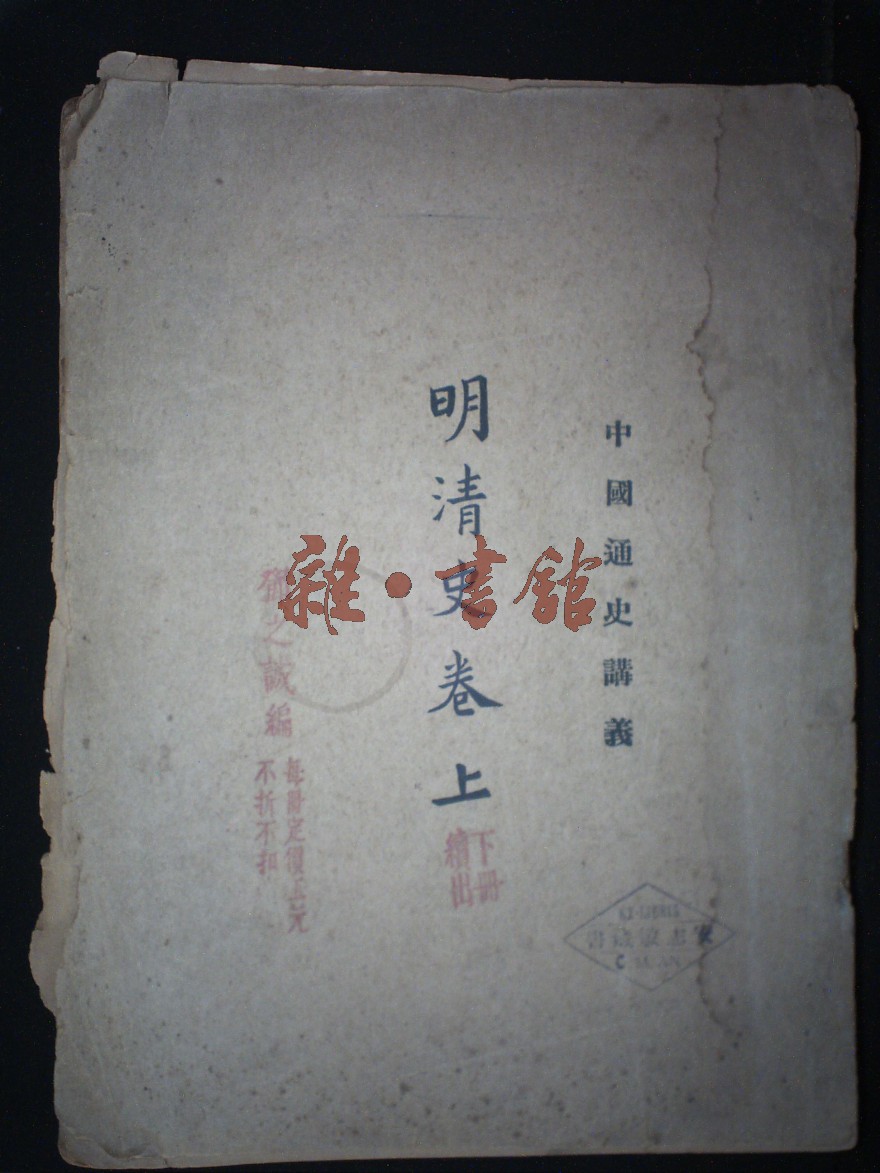 中國通史講義
明清史卷上
下冊
續出
鄧之誠編
每冊定價五元
不折不扣
雜·書館
安志敏藏書